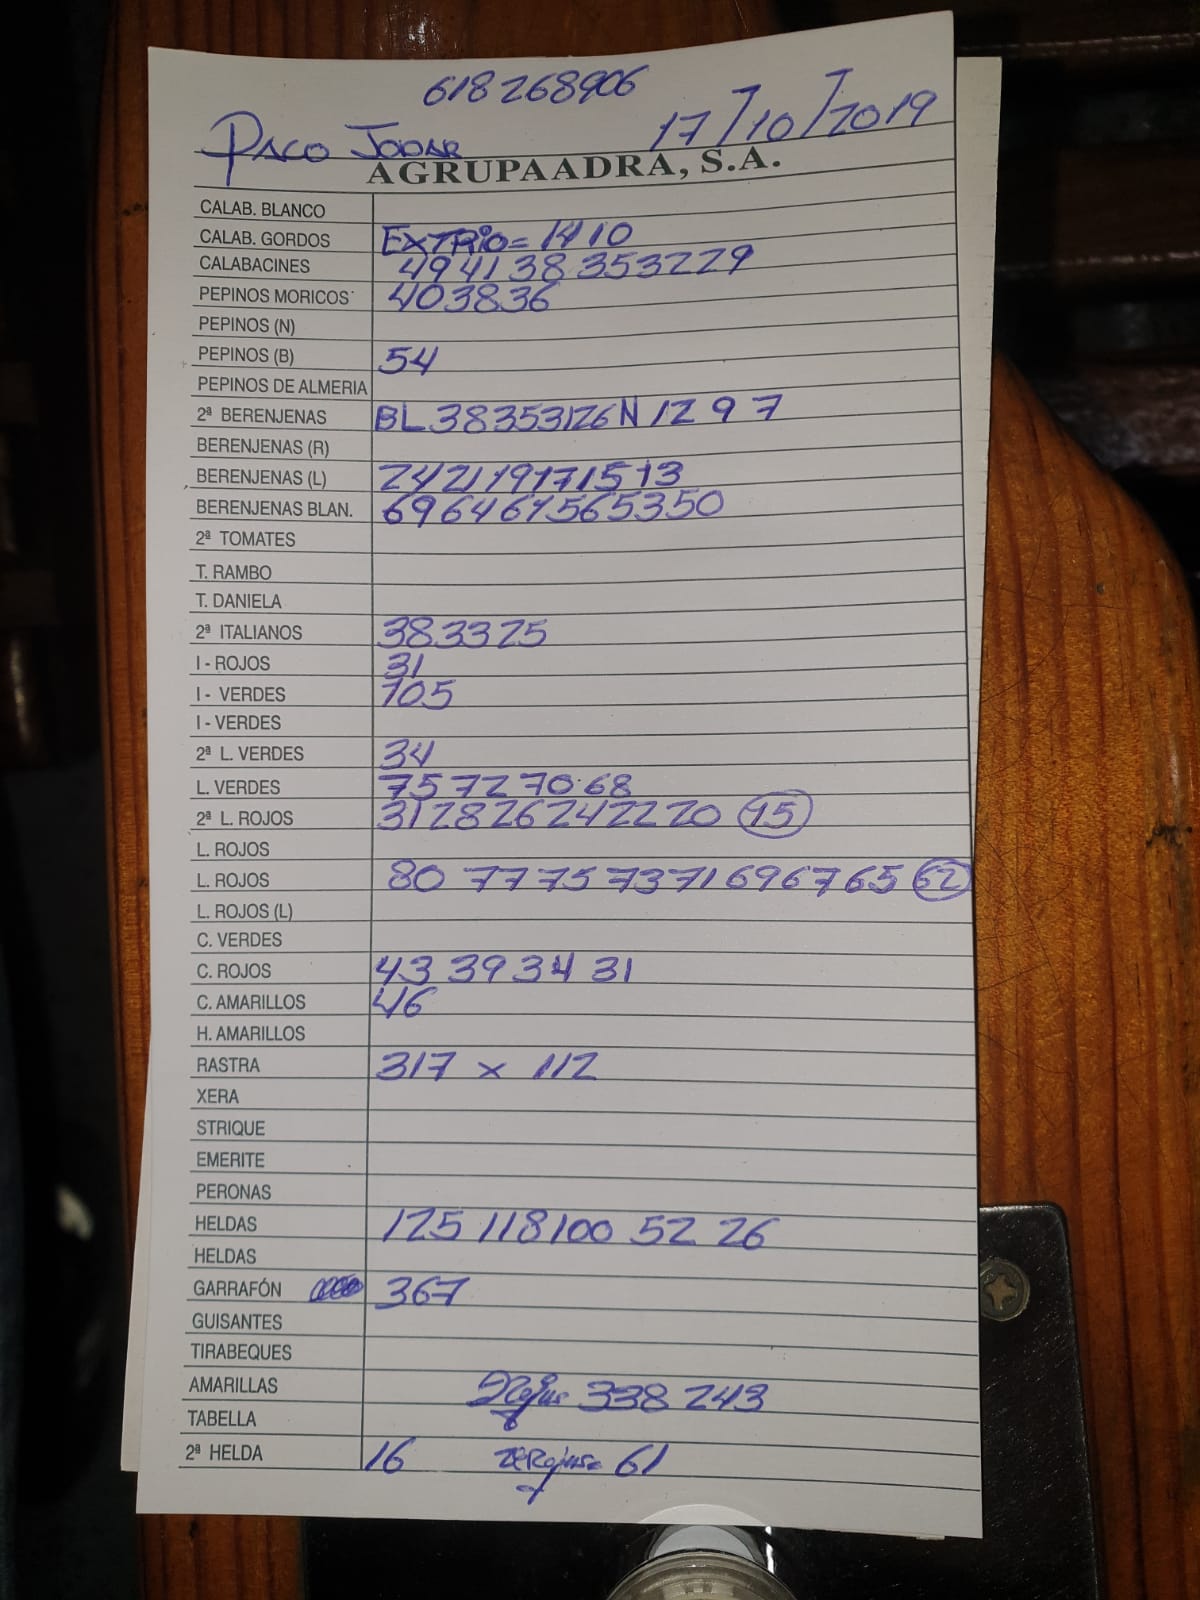 618268906
PACO JODAR 17/10/2019
AGRUPAADRA, S.A.
CALAB. BLANCO
CALAB. GORDOS EXTRIO= 14 10
CALABACINES 49 41 38 35 32 29
PEPINOS MORICOS 40 38 36
PEPINOS (N)
PEPINOS (B) 54
PEPINOS DE ALMERIA
2ª BERENJENAS BL 38 35 31 26 N 12 9 7
BERENJENAS (R)
BERENJENAS (L) 24 21 19 17 15 13
BERENJENAS BLAN. 69 64 61 56 53 50
2ª TOMATES
T. RAMBO
T. DANIELA
2ª ITALIANOS 38 33 25
I - ROJOS 31
I - VERDES 105
I - VERDES
2ª L. VERDES 34
L. VERDES 75 72 70 68
2ª L. ROJOS 31 28 26 24 22 20 15
L. ROJOS
L. ROJOS 80 77 75 73 71 69 67 65 62
L. ROJOS (L)
C. VERDES
C. ROJOS 43 39 34 31
C. AMARILLOS 46
H. AMARILLOS
RASTRA 317 x 112
XERA
STRIQUE
EMERITE
PERONAS
HELDAS 125 118 100 52 26
HELDAS
GARRAFÓN 367
GUISANTES
TIRABEQUES
AMARILLAS 338 243
TABELLA
2ª HELDA 16 61